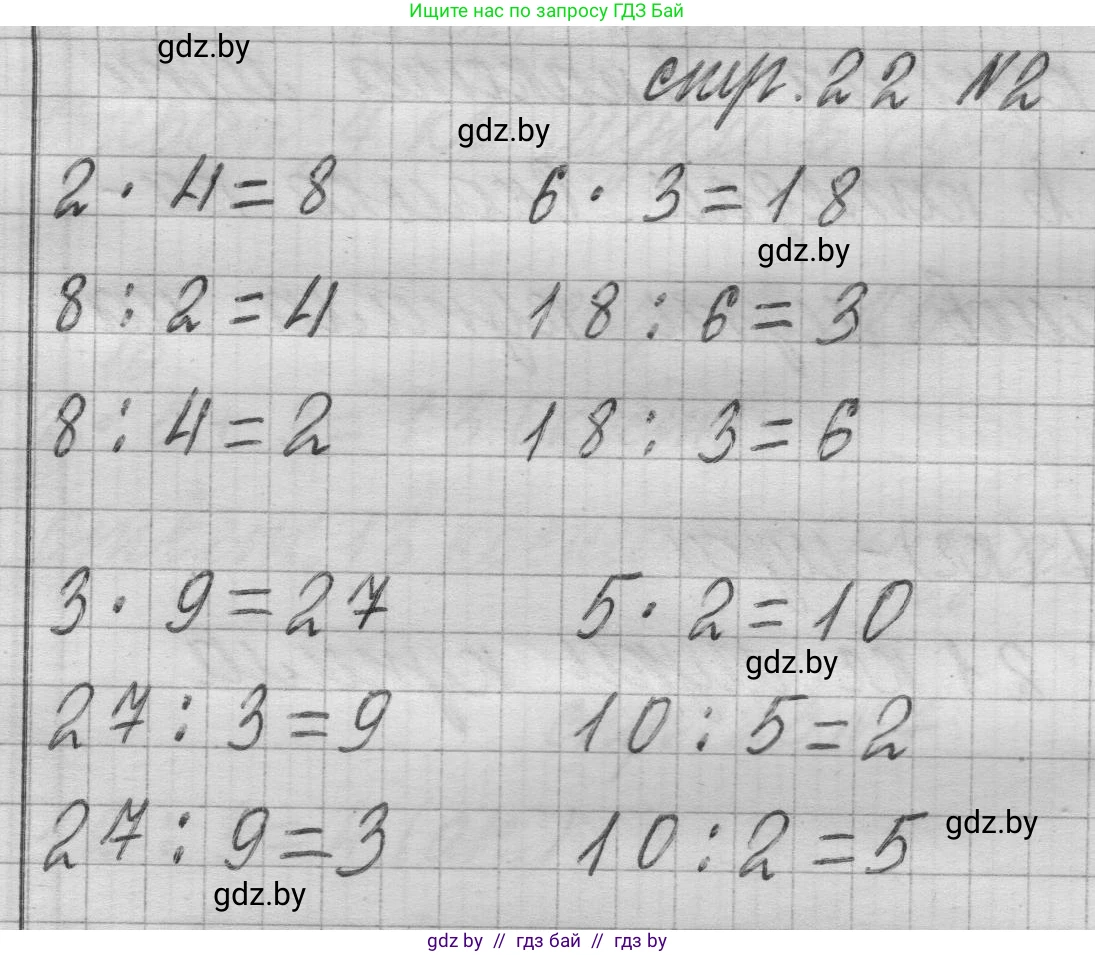 Ищите нас по запросу ГДЗ Бай
gdz.by
стр. 22 №2
gdz.by
2 · 4 = 8 6 · 3 = 18
gdz.by
8 : 2 = 4 18 : 6 = 3
8 : 4 = 2 18 : 3 = 6
3 · 9 = 27 5 · 2 = 10
gdz.by
27 : 3 = 9 10 : 5 = 2
27 : 9 = 3 10 : 2 = 5
gdz.by
gdz.by
gdz by // гдз бай // гдз by